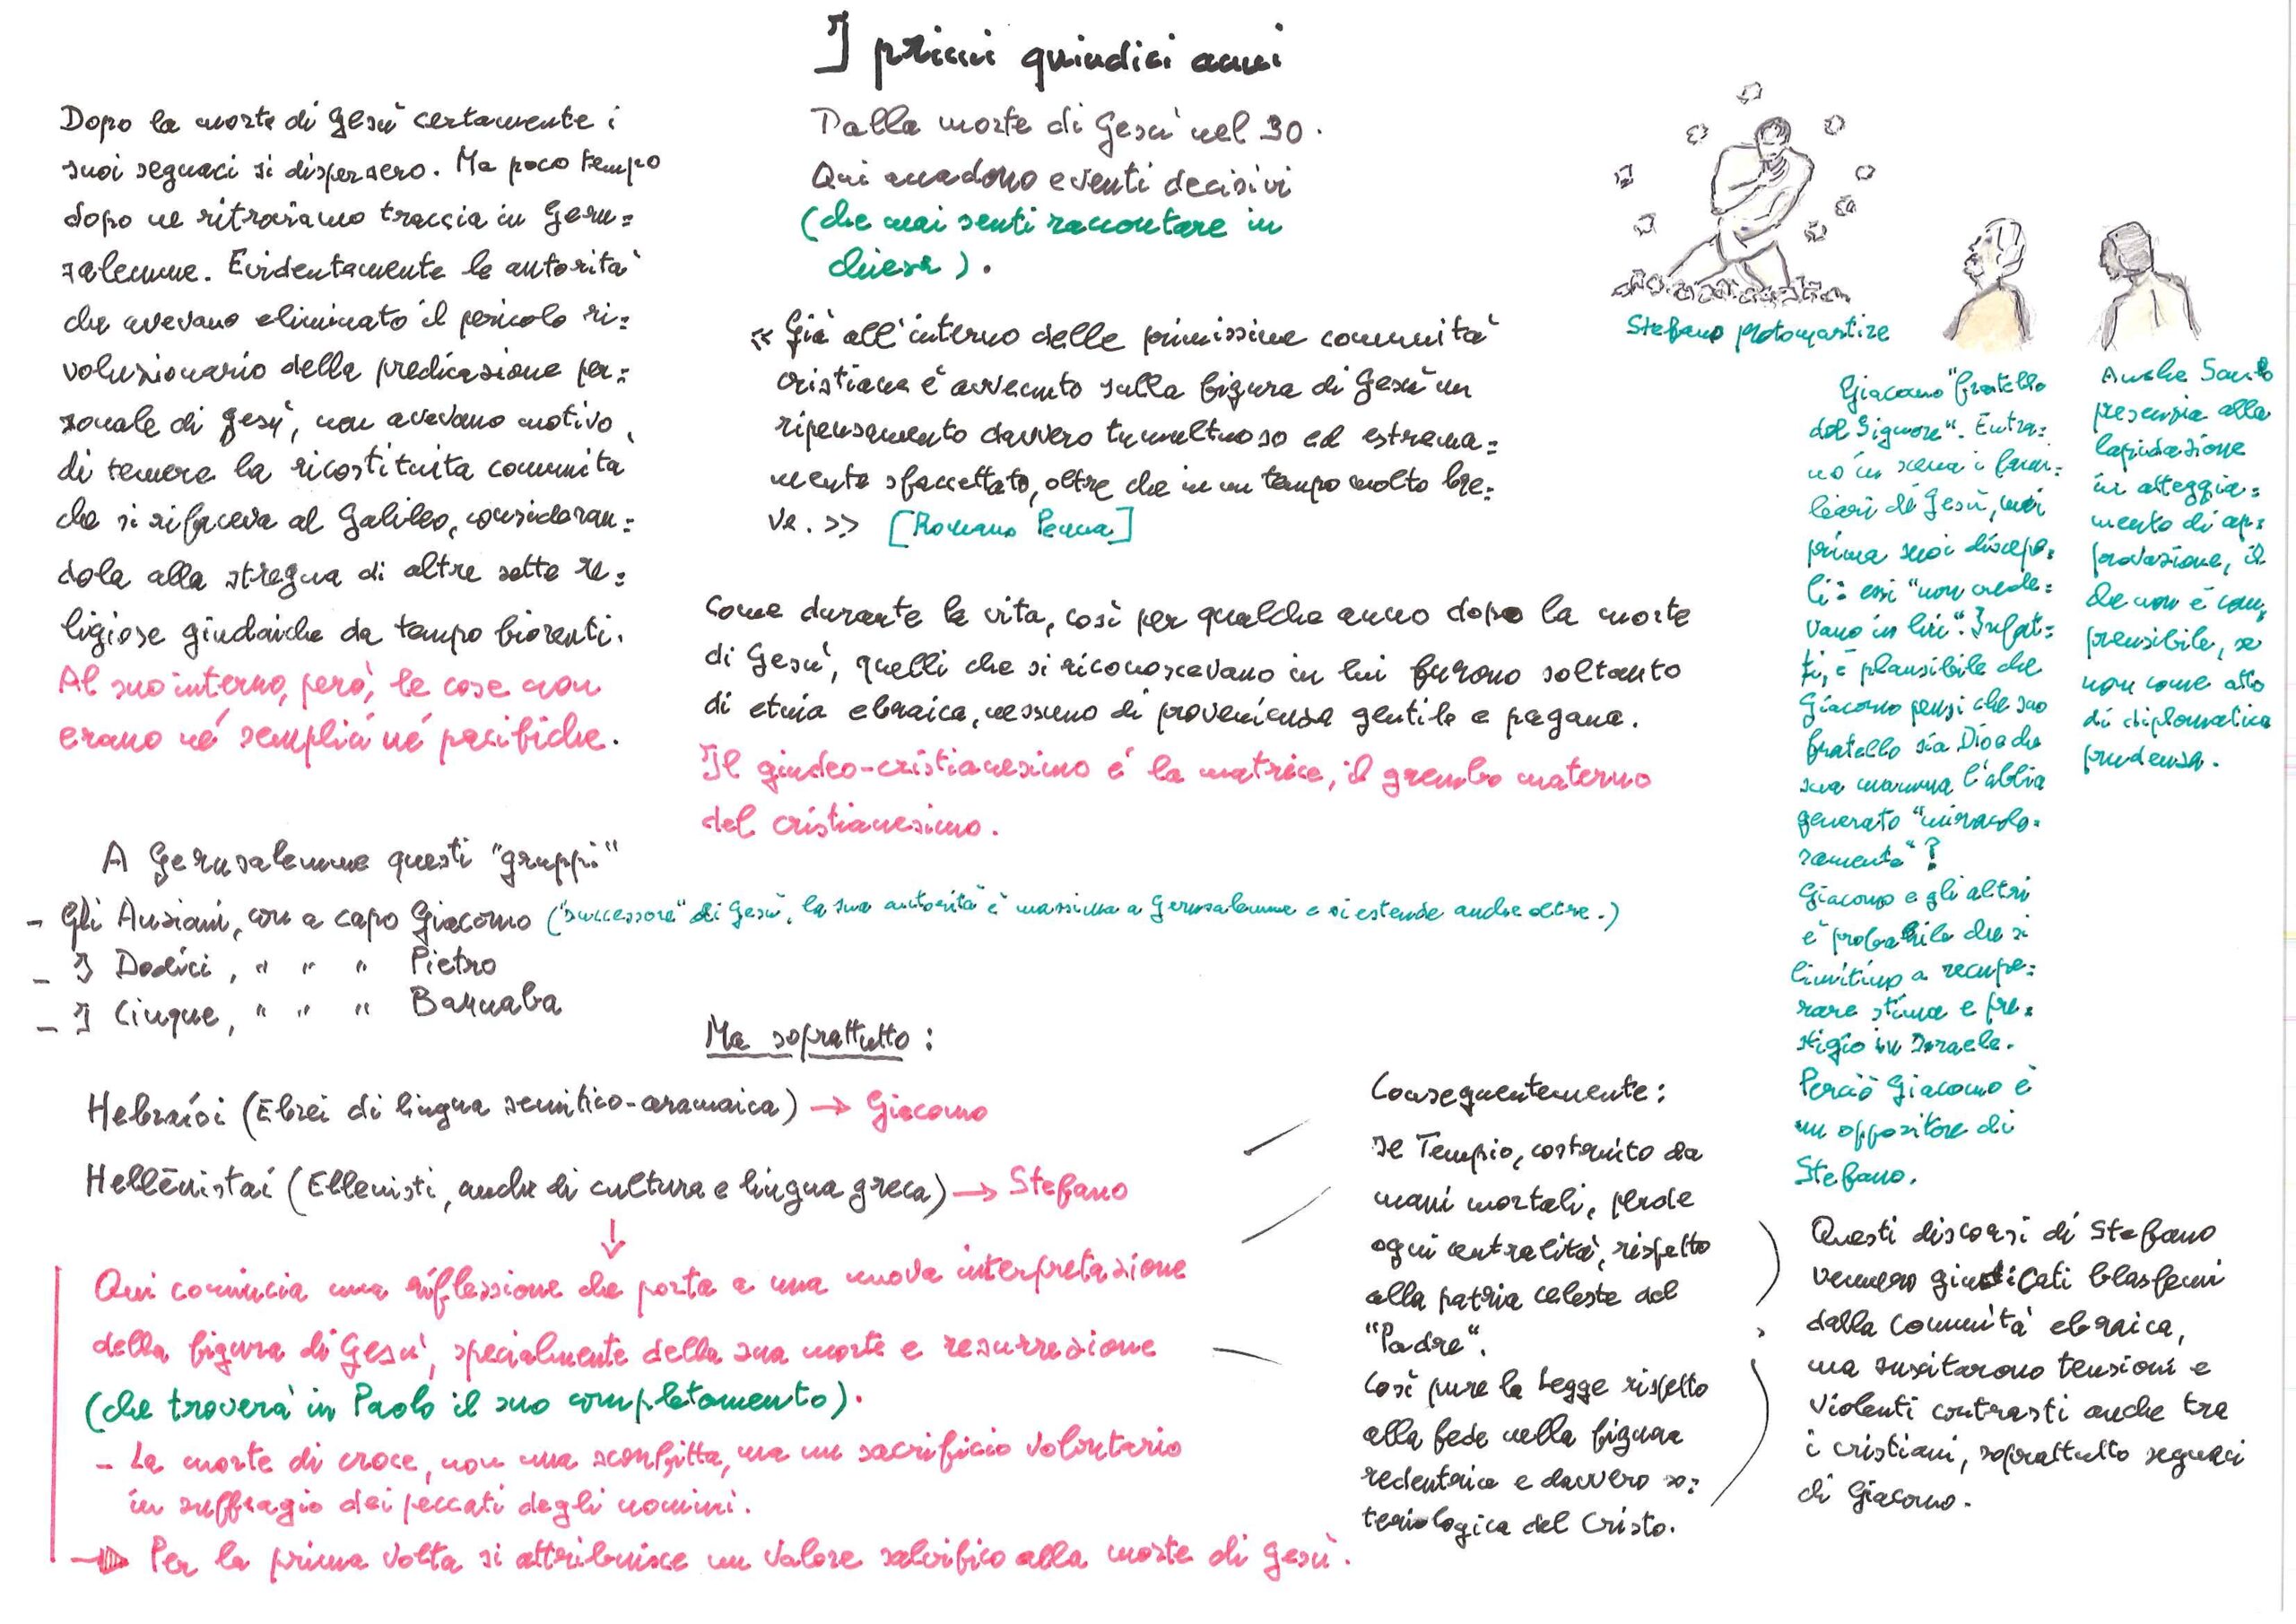 I primi quindici anni
Dopo la morte di Gesù certamente i
suoi seguaci si dispersero. Ma poco tempo
dopo ne ritroviamo traccia in Geru=
salemme. Evidentemente le autorità
che avevano eliminato il pericolo ri=
voluzionario della predicazione per=
sonale di Gesù, non avevano motivo
di temere la ricostituita comunità
che si rifaceva al Galileo, consideran=
dola alla stregua di altre sette re=
ligiose giudaiche da tempo fiorenti.
Al suo interno, però, le cose non
erano né semplici né pacifiche.
Dalla morte di Gesù nel 30.
Qui accadono eventi decisivi
(che mai senti raccontare in
chiesa).
« Già all'interno delle primissime comunità
cristiane è avvenuto sulla figura di Gesù un
ripensamento davvero tumultuoso ed estrema=
mente sfaccettato, oltre che in un tempo molto bre=
ve. >> [Romano Penna]
Come durante la vita, così per qualche anno dopo la morte
di Gesù, quelli che si riconoscevano in lui furono soltanto
di etnia ebraica, nessuno di provenienza gentile e pagana.
Il giudeo-cristianesimo è la matrice, il grembo materno
del cristianesimo.
Stefano protomartire
Giacomo "fratello
del Signore". Entra=
no in scena i fami=
liari di Gesù, mai
prima suoi discepo=
li: essi "non crede=
vano in lui". Infat=
ti, è plausibile che
Giacomo pensi che suo
fratello sia Dio e che
sua mamma l'abbia
generato "miracolo=
samente"?
Giacomo e gli altri
è probabile che si
limitino a recupe=
rare stima e pre=
stigio in Israele.
Perciò Giacomo è
un oppositore di
Stefano.
Anche Saulo
presenzia alla
lapidazione
in atteggia=
mento di ap=
provazione, il
che non è com=
prensibile, se
non come atto
di diplomatica
prudenza.
A Gerusalemme questi "gruppi"
- Gli Anziani, con a capo Giacomo ("successore" di Gesù, la sua autorità è massima a Gerusalemme e si estende anche oltre.)
- I Dodici, " " " Pietro
- I Cinque, " " " Barnaba
Ma soprattutto:
Hebraíoi (Ebrei di lingua semitico-aramaica) → Giacomo
Hellēnistaí (Ellenisti, anche di cultura e lingua greca) → Stefano
↓
Qui comincia una riflessione che porta a una nuova interpretazione
della figura di Gesù, specialmente della sua morte e resurrezione
(che troverà in Paolo il suo completamento).
- La morte di croce, non una sconfitta, ma un sacrificio volontario
in suffragio dei peccati degli uomini.
→ Per la prima volta si attribuisce un valore salvifico alla morte di Gesù.
Conseguentemente:
Il Tempio, costruito da
mani mortali, perde
ogni centralità, rispetto
alla patria celeste del
"Padre".
Così pure la Legge rispetto
alla fede nella figura
redentrice e davvero so=
teriologica del Cristo.
Questi discorsi di Stefano
vennero giudicati blasfemi
dalla comunità ebraica,
ma suscitarono tensioni e
violenti contrasti anche tra
i cristiani, soprattutto seguaci
di Giacomo.